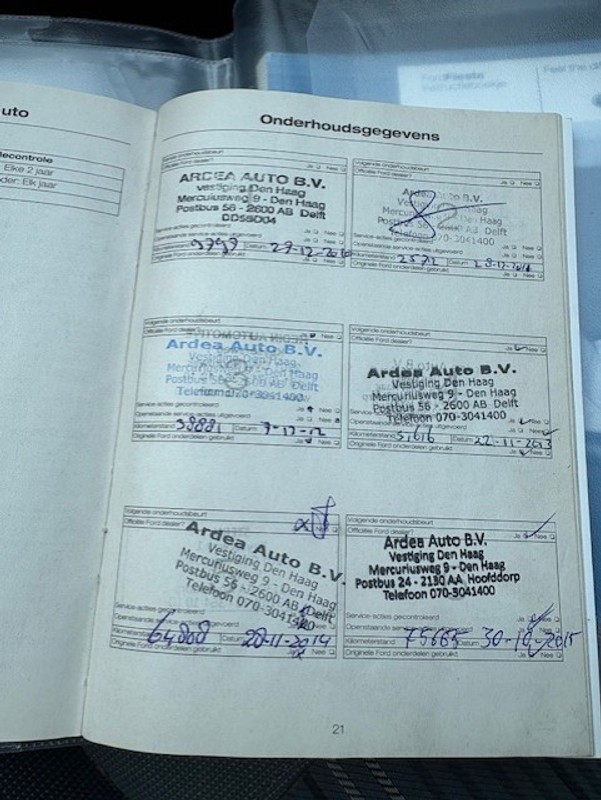 uto
lecontrole
Elke 2 jaar
der: Elk jaar
FordFiesta
Instructieboekje
Feel the di
Onderhoudsgegevens
Volgende onderhoudsbeurt
Officiële Ford dealer?
Ja Nee
ARDEA AUTO B.V.
vestiging Den Haag
Mercuriusweg 9 - Den Haag
Postbus 56 - 2600 AB Delft
Service-acties gecontroleerd
Ja Nee
Openstaande service-acties uitgevoerd
Ja Nee
Kilometerstand Datum 29-12-2010
Originele Ford onderdelen gebruikt
Ja Nee
Volgende onderhoudsbeurt
Officiële Ford dealer?
Ja Nee
Ardea Auto B.V.
Vestiging Den Haag
Mercuriusweg 9 - Den Haag
Postbus 56 - 2600 AB Delft
Telefoon 070-3041400
Service-acties gecontroleerd
Ja Nee
Openstaande service-acties uitgevoerd
Ja Nee
Kilometerstand Datum
Originele Ford onderdelen gebruikt
Ja Nee
Volgende onderhoudsbeurt
Officiële Ford dealer?
Ja Nee
Ardea Auto B.V.
Vestiging Den Haag
Mercuriusweg 9 - Den Haag
Postbus 56 - 2600 AB Delft
Telefoon 070-3041400
Service-acties gecontroleerd
Ja Nee
Openstaande service-acties uitgevoerd
Ja Nee
Kilometerstand 38881 Datum
Originele Ford onderdelen gebruikt
Ja Nee
Volgende onderhoudsbeurt
Officiële Ford dealer?
Ja Nee
Ardea Auto B.V.
Vestiging Den Haag
Mercuriusweg 9 - Den Haag
Postbus 56 - 2600 AB Delft
Telefoon 070-3041400
Service-acties gecontroleerd
Ja Nee
Openstaande service-acties uitgevoerd
Ja Nee
Kilometerstand 51616 Datum 22-11-2013
Originele Ford onderdelen gebruikt
Ja Nee
Volgende onderhoudsbeurt
Officiële Ford dealer?
Ardea Auto B.V.
Vestiging Den Haag
Mercuriusweg 9 - Den Haag
Postbus 56 - 2600 AB Delft
Telefoon 070-3041400
Service-acties gecontroleerd
Openstaande service-acties uitgevoerd
Kilometerstand 64808 Datum 28-11-2014
Originele Ford onderdelen gebruikt
Ja Nee
Volgende onderhoudsbeurt
Officiële Ford dealer?
Ja Nee
Ardea Auto B.V.
Vestiging Den Haag
Mercuriusweg 9 - Den Haag
Postbus 24 - 2130 AA Hoofddorp
Telefoon 070-3041400
Service-acties gecontroleerd
Ja Nee
Openstaande service-acties uitgevoerd
Ja Nee
Kilometerstand 75665 Datum 30-10-2015
Originele Ford onderdelen gebruikt
Ja Nee
21